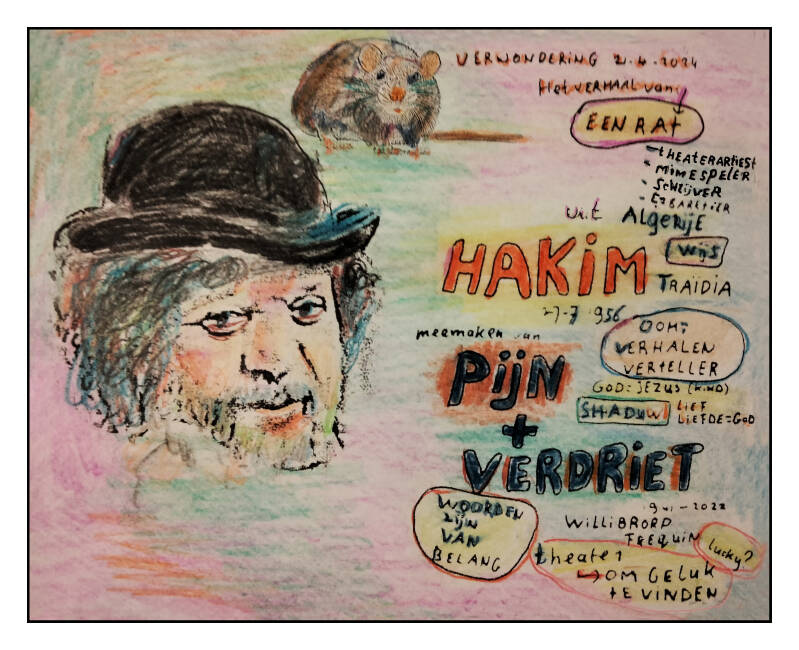 VERWONDERING 2.4.2024
Het VERHAAL van
EEN RAT
- THEATERARTIEST
- MIMESPELER
- SCHRIJVER
uit ALGERIJE
WIJS
HAKIM TRAÏDIA
27-7 1956
meemaken van
OOK:
VERHALEN
VERTELLER
PIJN
GOD: JEZUS (KIND)
SHADUW
LIEF
LIEFDE=GOD
+
VERDRIET
WOORDEN
ZIJN
VAN
BELANG
WILLIBRORD
FREQUIN
lucky?
theater
OM GELUK
TE VINDEN